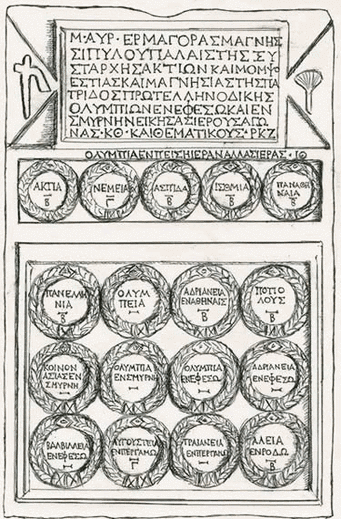 Μ·ΑΥΡ·ΕΡΜΑΓΟΡΑΣΜΑΓΝΗΣ
ΣΙΠΥΛΟΥΠΑΛΑΙΣΤΗΣΞΥ
ΣΤΑΡΧΗΣΑΚΤΙΩΝΚΑΙΜΟΜΨΟ
ΕΣΤΙΑΣΚΑΙΜΑΓΝΗΣΙΑΣΤΗΣΠΑ
ΤΡΙΔΟΣΠΡΩΤΕΛΛΗΝΟΔΙΚΗΣ
ΟΛΥΜΠΙΩΝΕΝΕΦΕΣΩΚΑΙΕΝ
ΣΜΥΡΝΗΝΕΙΚΗΣΑΣΙΕΡΟΥΣΑΓΩ
ΝΑΣ·ΚΘ·ΚΑΙΘΕΜΑΤΙΚΟΥΣ·ΡΚΖ
ΟΛΥΜΠΙΑΕΝΠΕΙΣΗΙΕΡΑΝΑΛΛΑΣΙΕΡΑΣ·ΙΘ
ΑΚΤΙΑ
Β
ΝΕΜΕΙΑ
Γ
ΑΣΠΙΔΑ
Β
ΙΣΘΜΙΑ
Β
ΠΑΝΑΘΗ
ΝΑΙΑ
Β
ΠΑΝΕΛΛΗ
ΝΙΑ
Β
ΟΛΥΜ
ΠΕΙΑ
Ι
ΑΔΡΙΑΝΕΙΑ
ΕΝΑΘΗΝΑΙΣ
Β
ΠΟΤΙΟ
ΛΟΥΣ
Β
ΚΟΙΝΟΝ
ΑΣΙΑΣΕΝ
ΣΜΥΡΝΗ
Β
ΟΛΥΜΠΙΑ
ΕΝΣΜΥΡΝΗ
Ι
ΟΛΥΜΠΙΑ
ΕΝΕΦΕΣΩ
Ι
ΑΔΡΙΑΝΕΙΑ
ΕΝΕΦΕΣΩ
Ι
ΒΑΛΒΙΛΛΕΙΑ
ΕΝΕΦΕΣΩ
Ι
ΑΥΓΟΥΣΤΕΙΑ
ΕΝΠΕΡΓΑΜΩ
Γ
ΤΡΑΙΑΝΕΙΑ
ΕΝΠΕΡΓΑΜΩ
Ι
ΑΛΕΙΑ
ΕΝΡΟΔΩ
Β